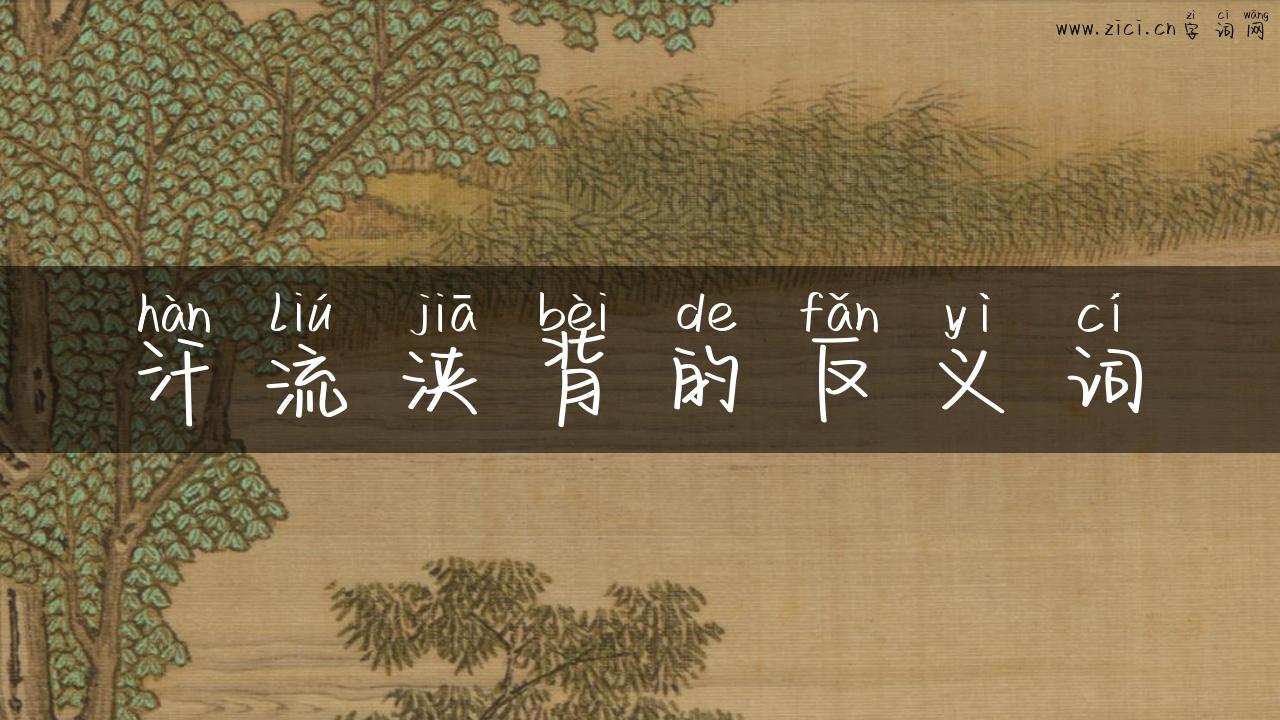 zì cí wǎng
www.zici.cn字词网
hàn liú jiā bèi de fǎn yì cí
汗流浃背的反义词